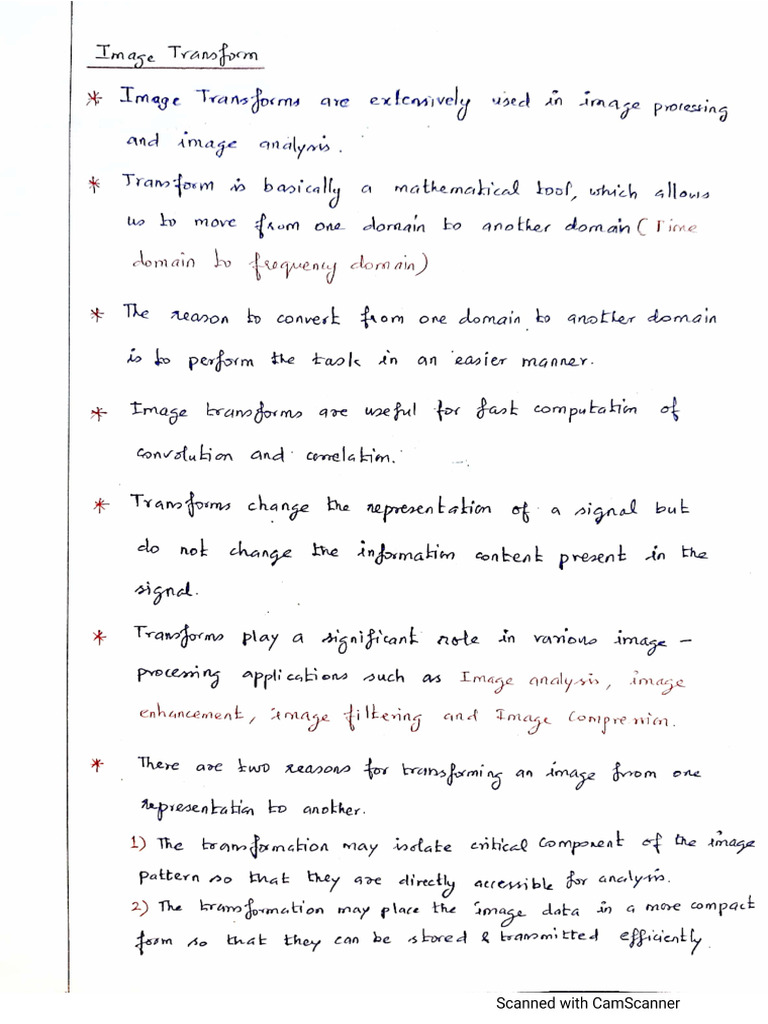 Image Transform
* Image Transforms are extensively used in image processing
and image analysis.
* Transform is basically a mathematical tool, which allows
us to move from one domain to another domain (Time
domain to frequency domain)
* The reason to convert from one domain to another domain
is to perform the task in an easier manner.
* Image transforms are useful for fast computation of
convolution and correlation.
* Transforms change the representation of a signal but
do not change the information content present in the
signal.
* Transforms play a significant role in various image -
processing applications such as Image analysis, image
enhancement, image filtering and Image Compression.
* There are two reasons for transforming an image from one
representation to another.
1) The transformation may isolate critical component of the image
pattern so that they are directly accessible for analysis.
2) The transformation may place the image data in a more compact
form so that they can be stored & transmitted efficiently.
Scanned with CamScanner